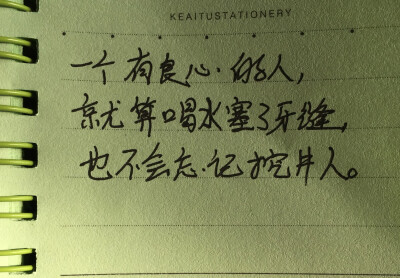 KEAITUSTATIONERY
一个有良心的人，
就算喝水塞了牙缝，
也不会忘记挖井人。